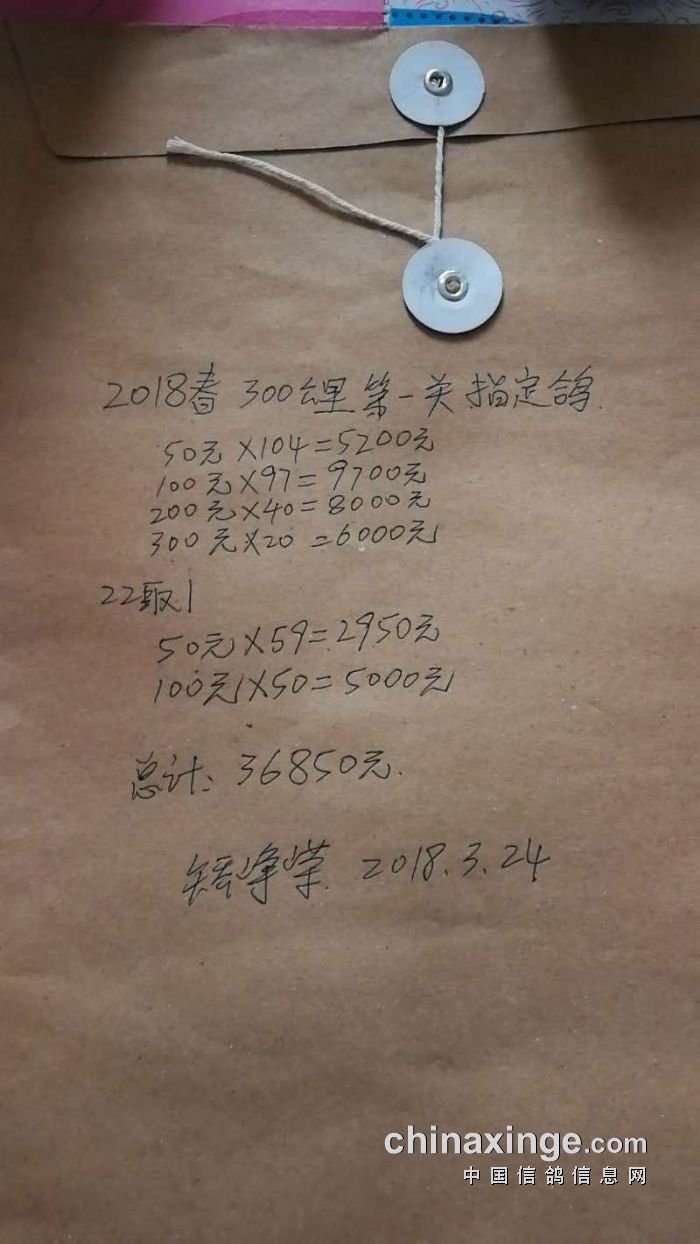 2018春 300公里第一关指定鸽.
50元×104=5200元
100元×97=9700元
200元×40=8000元
300元×20=6000元
22取1
50元×59=2950元
100元×50=5000元
总计: 36850元.
2018.3.24
chinaxinge.com
中国信鸽信息网